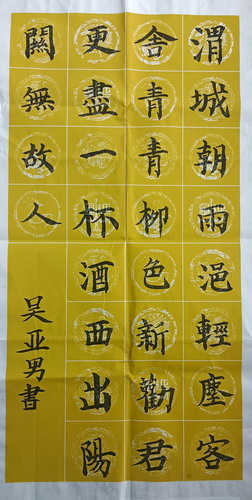 渭城朝雨浥輕塵客
舍青青柳色新勸君
更盡一杯酒西出陽
關無故人
吴亚男書